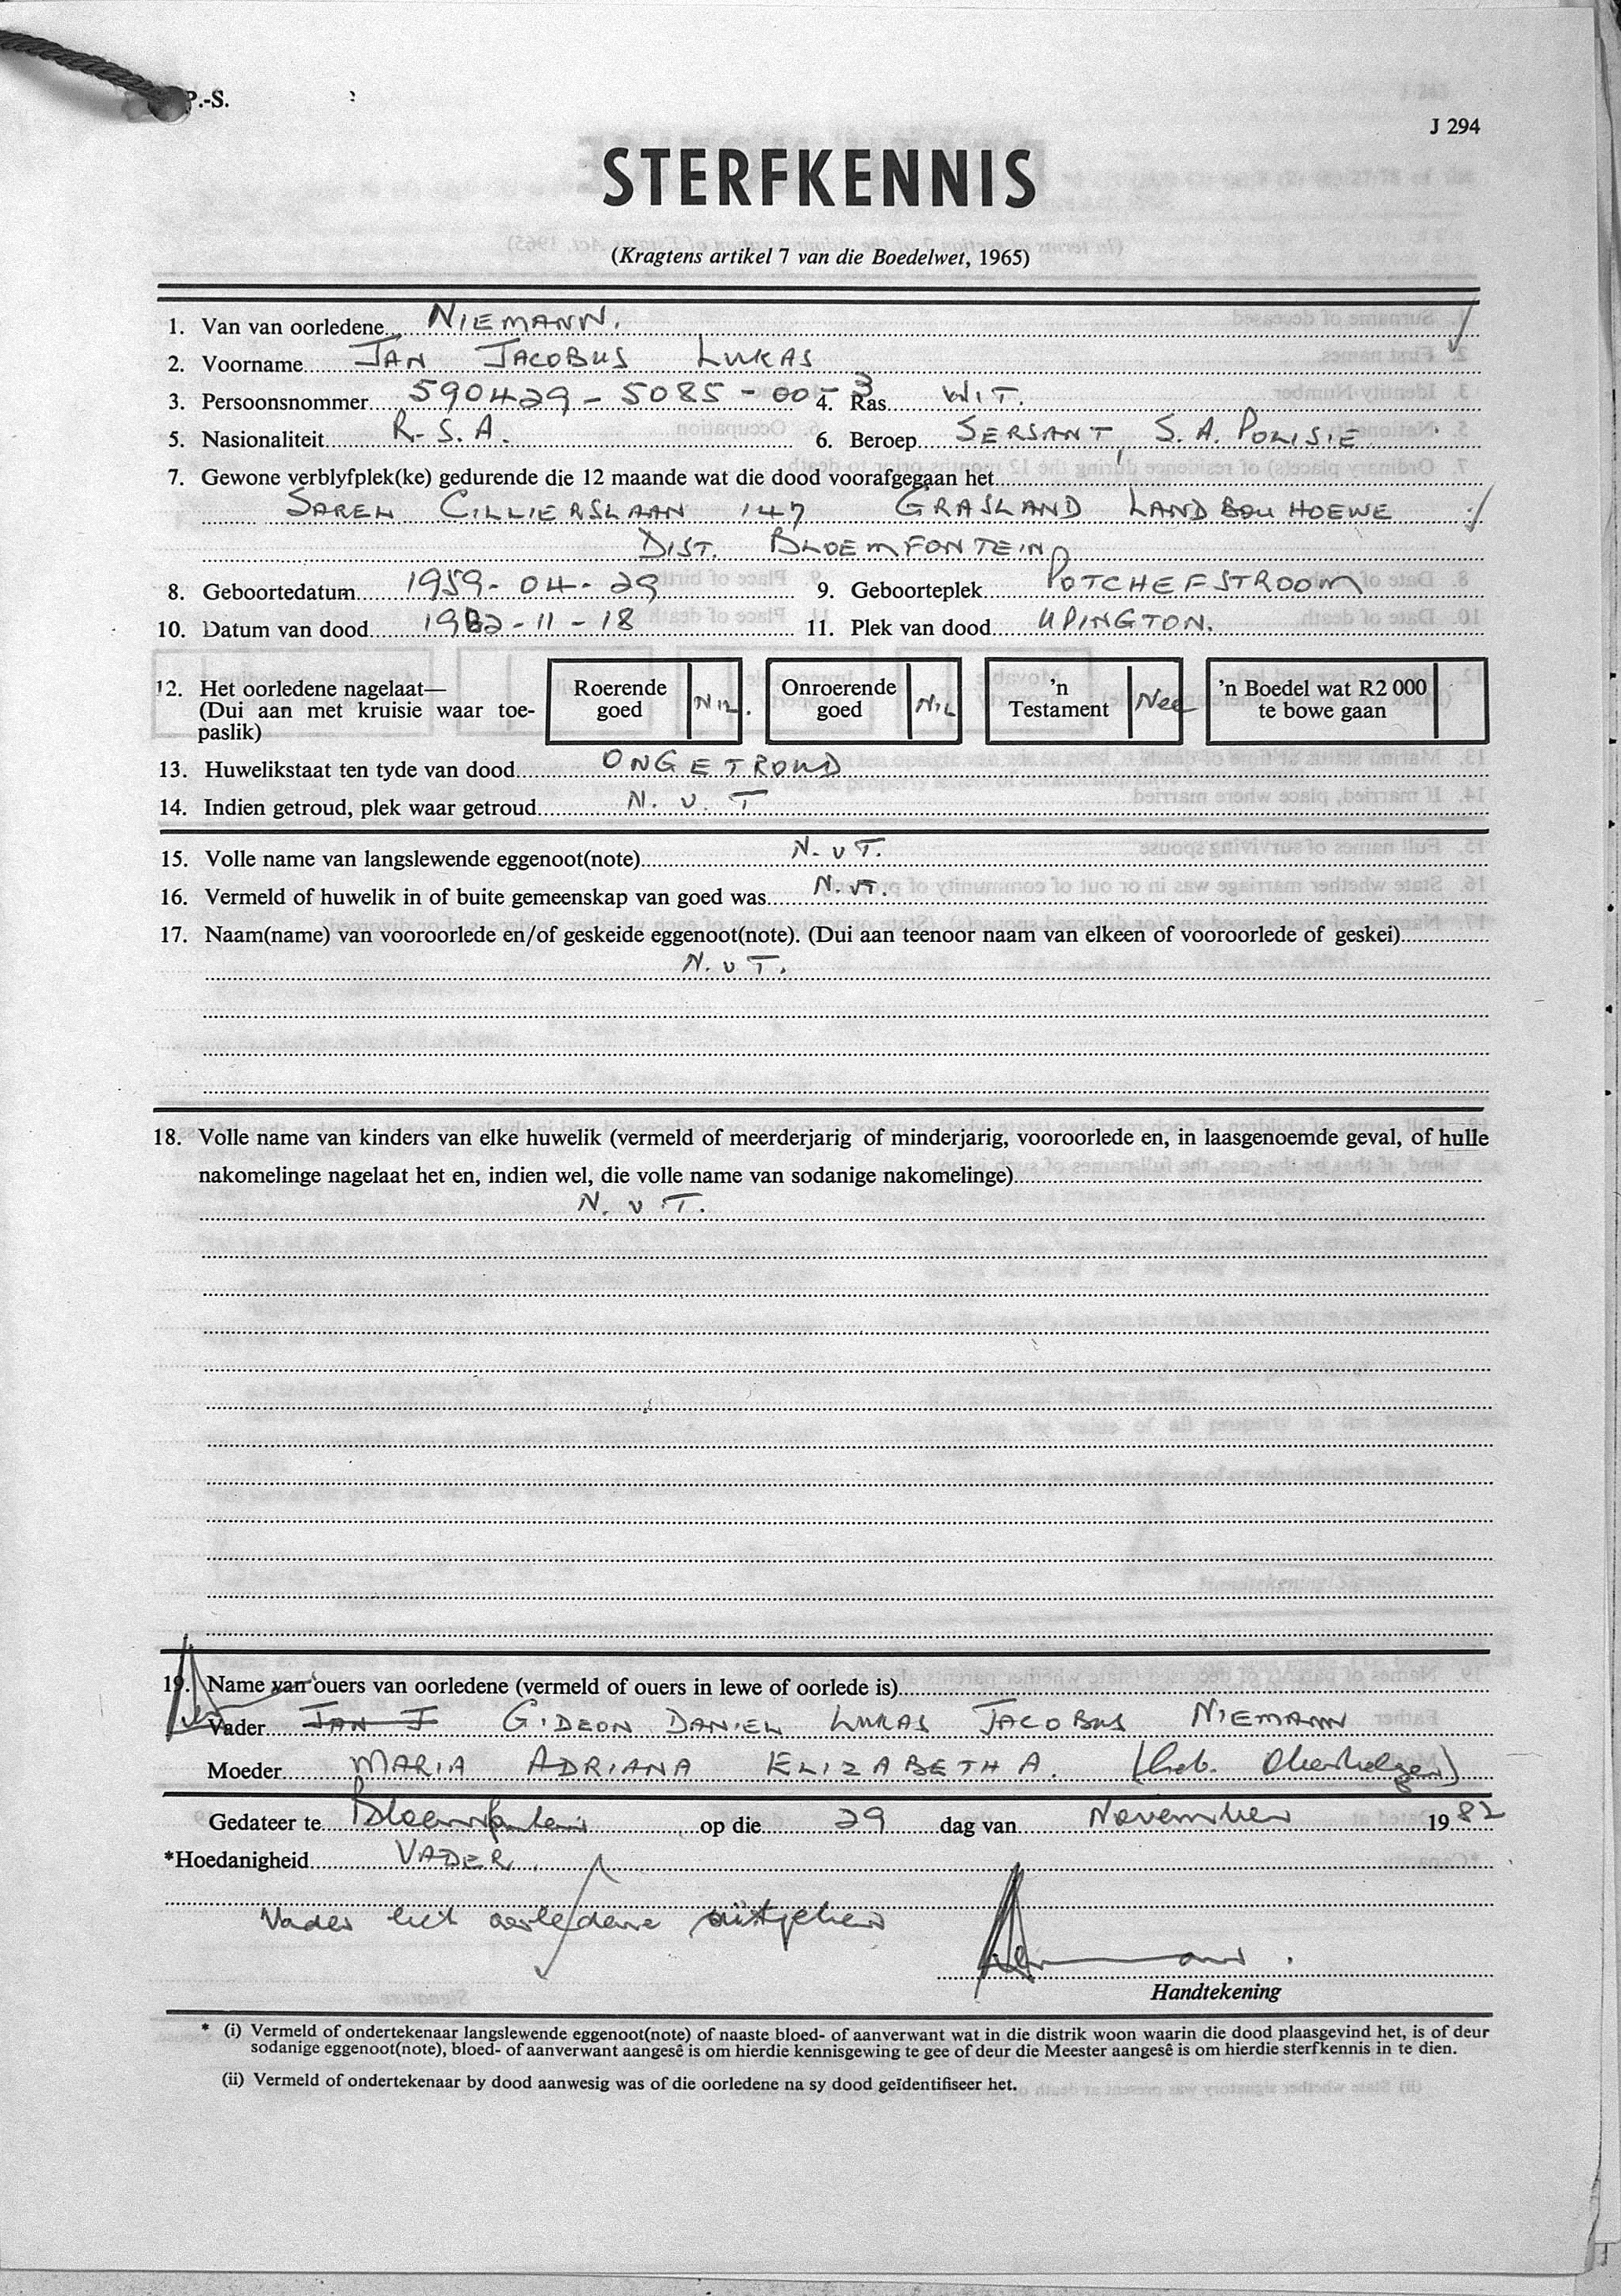 P.-S.
J 294
STERFKENNIS
(Kragtens artikel 7 van die Boedelwet, 1965)
1. Van van oorledene NIEMANN.
2. Voorname JAN JACOBUS LUKAS
3. Persoonsnommer 590429-5085-00-3 4. Ras WIT.
5. Nasionaliteit R.S.A. 6. Beroep SERSANT, S.A. POLISIE
7. Gewone verblyfplek(ke) gedurende die 12 maande wat die dood voorafgegaan het
SAREL CILLIERSLAAN 147 GRASLAND LANDBOU HOEWE
DIST. BLOEMFONTEIN
8. Geboortedatum 1959-04-29 9. Geboorteplek POTCHEFSTROOM
10. Datum van dood 1982-11-18 11. Plek van dood UPINGTON.
12. Het oorledene nagelaat—
(Dui aan met kruisie waar toe-
paslik)
Roerende goed NIL.
Onroerende goed NIL
'n Testament Nee
'n Boedel wat R2 000 te bowe gaan
13. Huwelikstaat ten tyde van dood ONGETROUD
14. Indien getroud, plek waar getroud N.v.T
15. Volle name van langslewende eggenoot(note) N.vT.
16. Vermeld of huwelik in of buite gemeenskap van goed was N.vT.
17. Naam(name) van vooroorlede en/of geskeide eggenoot(note). (Dui aan teenoor naam van elkeen of vooroorlede of geskei)
N.vT.
18. Volle name van kinders van elke huwelik (vermeld of meerderjarig of minderjarig, vooroorlede en, in laasgenoemde geval, of hulle
nakomelinge nagelaat het en, indien wel, die volle name van sodanige nakomelinge)
N.vT.
19. Name van ouers van oorledene (vermeld of ouers in lewe of oorlede is)
Vader JAN J GIDEON DANIEL LUKAS JACOBUS NIEMANN
Moeder MARIA ADRIANA ELIZABETHA. (Geb. Oberholzer)
Gedateer te Bloemfontein op die 29 dag van November 1982
*Hoedanigheid VADER.
Vader het oorledene uitgeken
Handtekening
* (i) Vermeld of ondertekenaar langslewende eggenoot(note) of naaste bloed- of aanverwant wat in die distrik woon waarin die dood plaasgevind het, is of deur
sodanige eggenoot(note), bloed- of aanverwant aangesê is om hierdie kennisgewing te gee of deur die Meester aangesê is om hierdie sterfkennis in te dien.
(ii) Vermeld of ondertekenaar by dood aanwesig was of die oorledene na sy dood geïdentifiseer het.